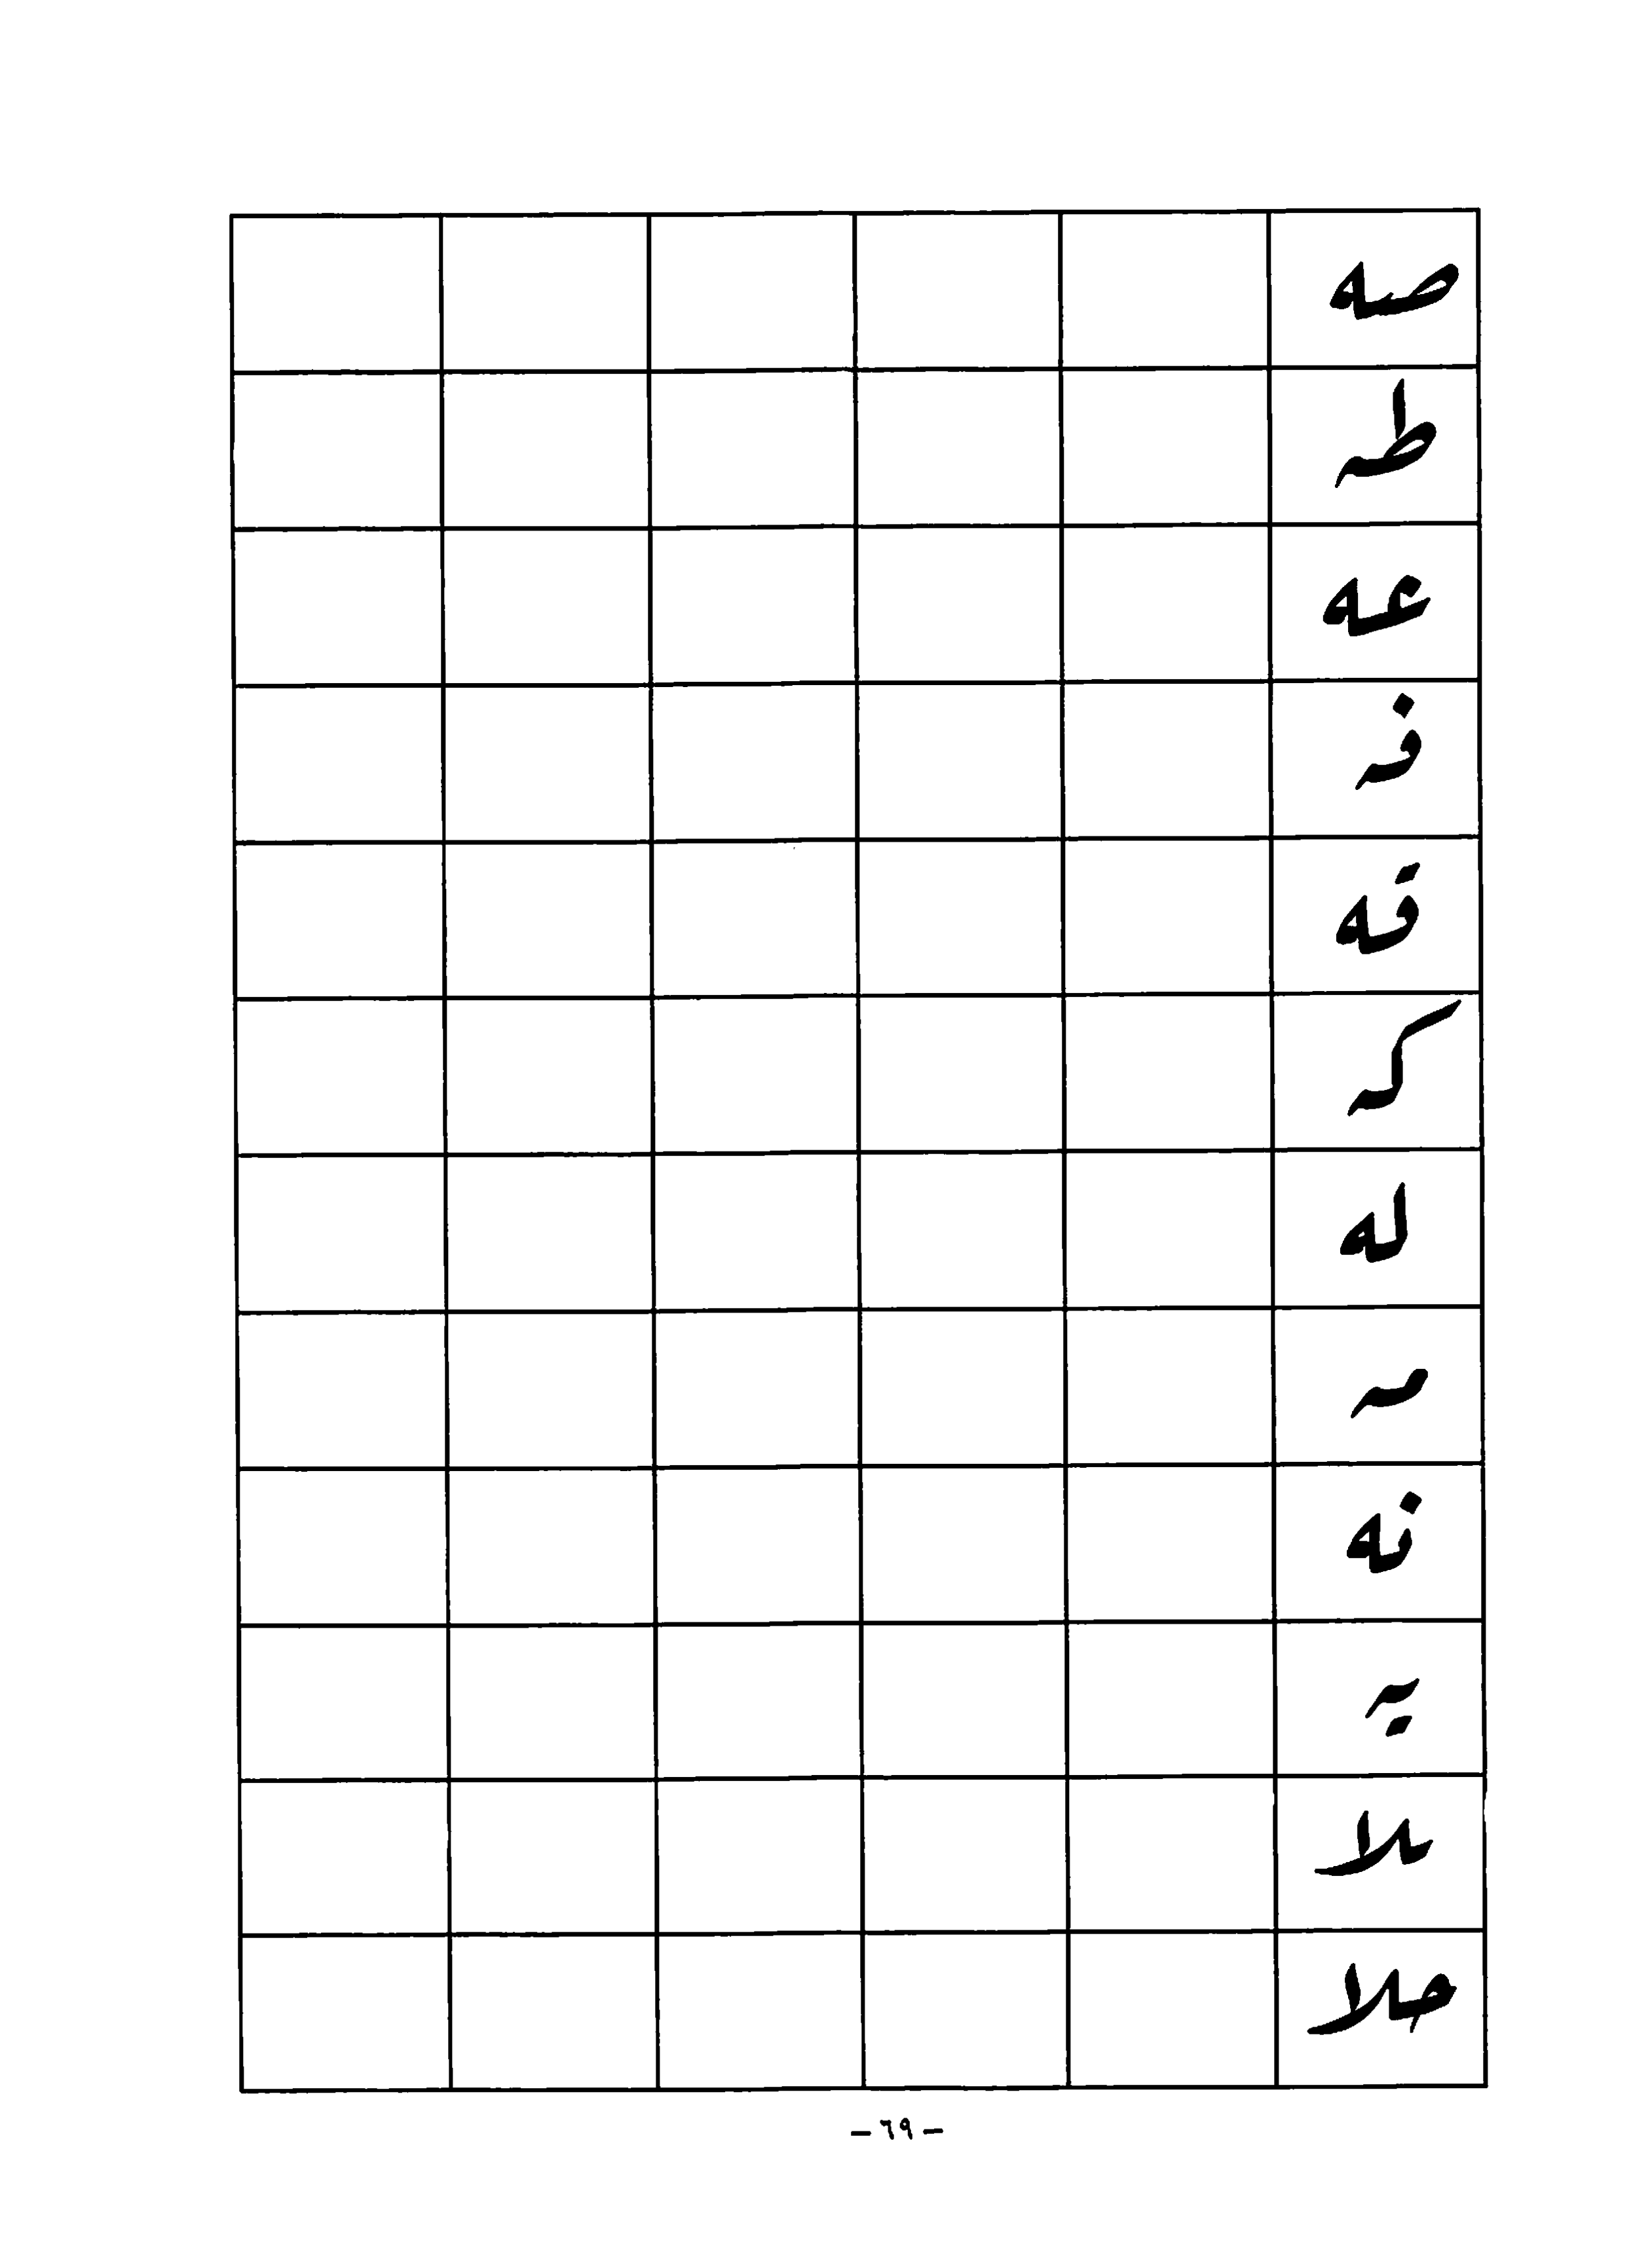 صه
طه
عه
فه
قه
كه
له
مه
نه
يه
ملا
حلا
- ٦٩ -